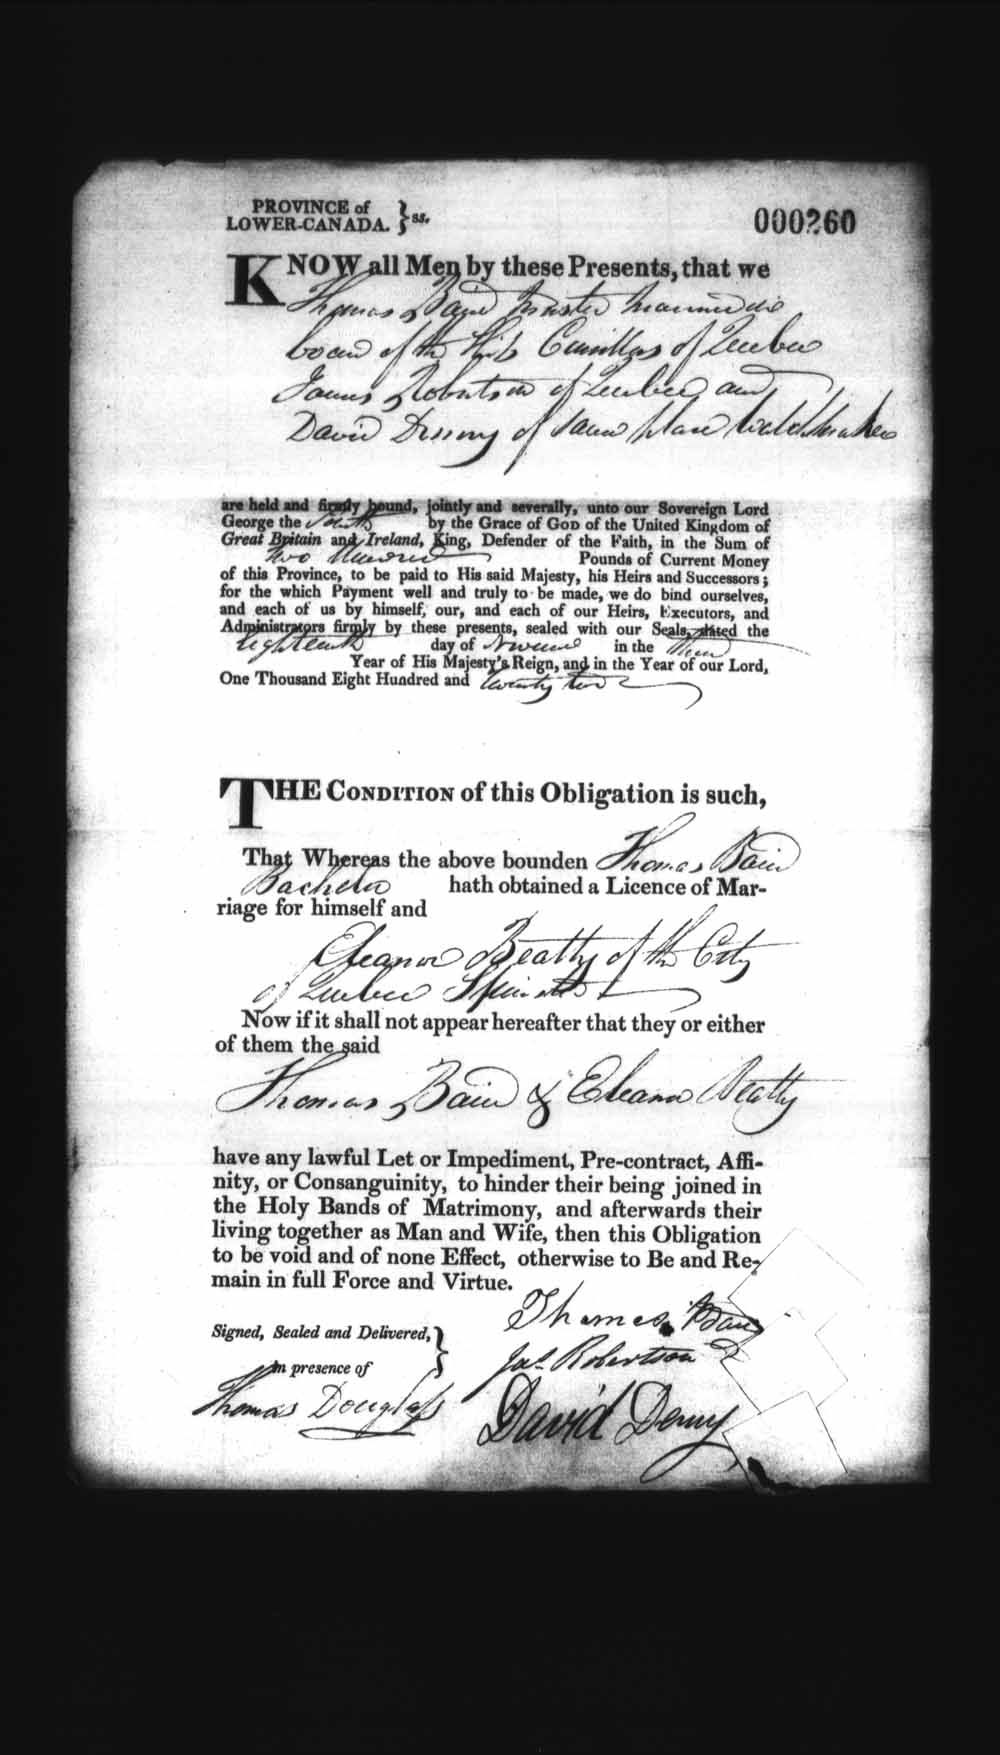 PROVINCE of
LOWER-CANADA. } ss.
000260
KNOW all Men by these Presents, that we
Thomas Baird Master Mariner on
board of the Ship of Quebec
James Robertson of Quebec and
David Denny of same place Watchmaker
are held and firmly bound, jointly and severally, unto our Sovereign Lord
George the Fourth by the Grace of GOD of the United Kingdom of
Great Britain and Ireland, King, Defender of the Faith, in the Sum of
Two Hundred Pounds of Current Money
of this Province, to be paid to His said Majesty, his Heirs and Successors;
for the which Payment well and truly to be made, we do bind ourselves,
and each of us by himself, our, and each of our Heirs, Executors, and
Administrators firmly by these presents, sealed with our Seals, dated the
Eighteenth day of in the Third
Year of His Majesty's Reign, and in the Year of our Lord,
One Thousand Eight Hundred and twenty two
THE CONDITION of this Obligation is such,
That Whereas the above bounden Thomas Baird
Bachelor hath obtained a Licence of Mar-
riage for himself and
Eleanor Beatty of the City
of Quebec Spinster
Now if it shall not appear hereafter that they or either
of them the said
Thomas Baird & Eleanor Beatty
have any lawful Let or Impediment, Pre-contract, Affi-
nity, or Consanguinity, to hinder their being joined in
the Holy Bands of Matrimony, and afterwards their
living together as Man and Wife, then this Obligation
to be void and of none Effect, otherwise to Be and Re-
main in full Force and Virtue.
Thomas Baird
Signed, Sealed and Delivered, }
Jas. Robertson
in presence of
Thomas Douglass
David Denny